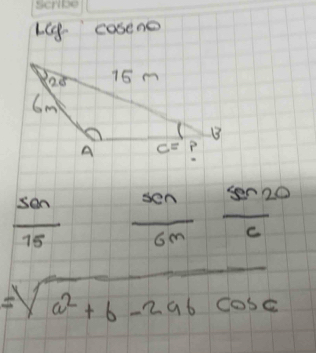 Scribe
Ley coseno
20
15 m
6m
A
C= ?
B
sen sen sen 20
15 6m c
=√ a² + b - 2ab cos c